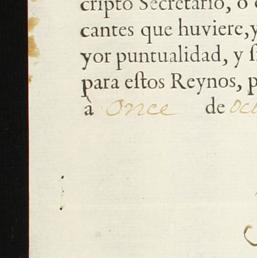 cripto Secretario, o
cantes que huviere, y
yor puntualidad, y
para eſtos Reynos, p
à Once de oc